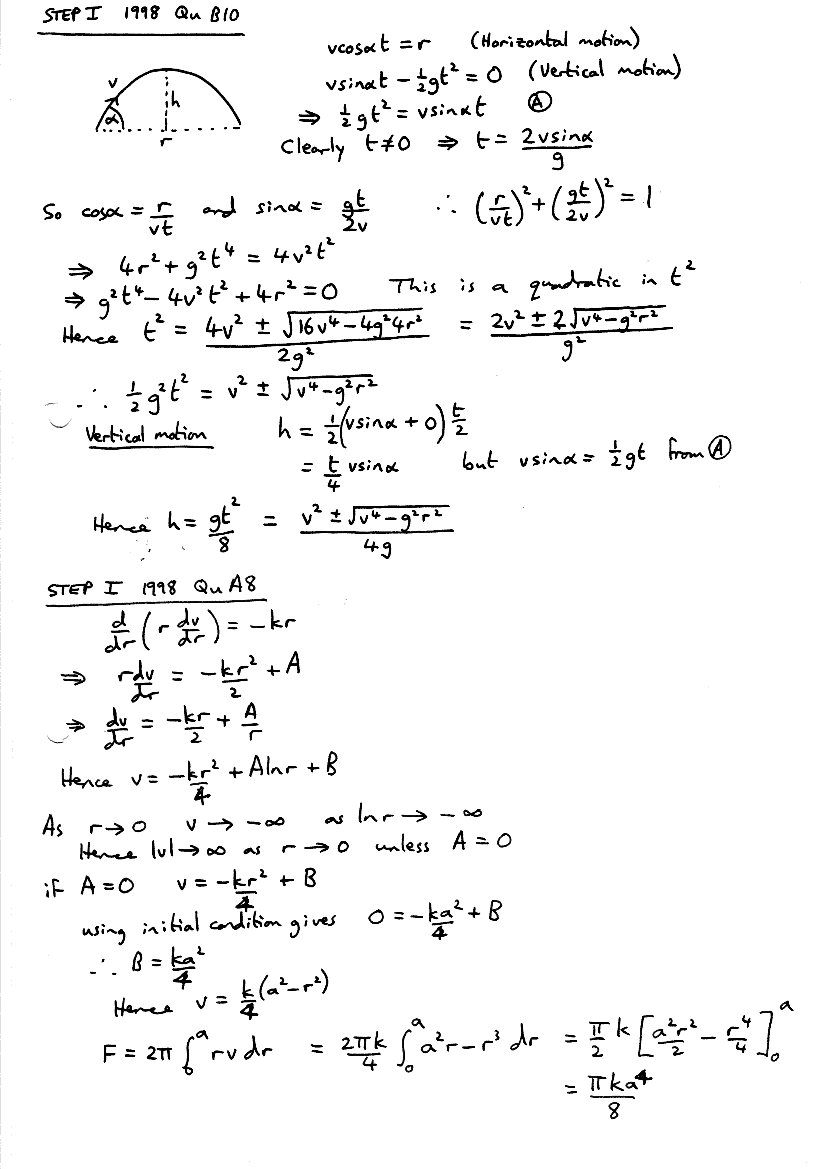 STEP I 1998 Qu B10
vcosαt = r (Horizontal motion)
vsinαt - ½gt² = 0 (Vertical motion)
⇒ ½gt² = vsinαt Ⓐ
Clearly t≠0 ⇒ t = 2vsinα/g
v
α
h
r
So cosα = r/vt and sinα = gt/2v ∴ (r/vt)² + (gt/2v)² = 1
⇒ 4r² + g²t⁴ = 4v²t²
⇒ g²t⁴ - 4v²t² + 4r² = 0 This is a quadratic in t²
Hence t² = (4v² ± √(16v⁴ - 4g²4r²))/2g² = (2v² ± 2√(v⁴ - g²r²))/g²
∴ ½g²t² = v² ± √(v⁴ - g²r²)
Vertical motion h = ½(vsinα + 0)t/2
= t/4 vsinα but vsinα = ½gt from Ⓐ
Hence h = gt²/8 = (v² ± √(v⁴ - g²r²))/4g
STEP I 1998 Qu A8
d/dr (r dv/dr) = -kr
⇒ rdv/dr = -kr²/2 + A
⇒ dv/dr = -kr/2 + A/r
Hence v = -kr²/4 + Alnr + B
As r→0 v→ -∞ as lnr → -∞
Hence |v|→∞ as r→0 unless A = 0
if A = 0 v = -kr²/4 + B
using initial condition gives 0 = -ka²/4 + B
∴ B = ka²/4
Hence v = k/4(a² - r²)
F = 2π ∫₀ᵃ rv dr = 2πk/4 ∫₀ᵃ a²r - r³ dr = π/2 k [a²r²/2 - r⁴/4]₀ᵃ
= πka⁴/8